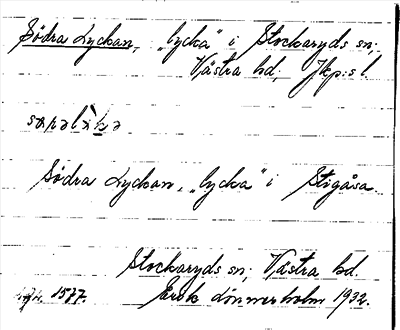 Södra Lyckan, „lycka“ i Stockaryds sn;
Västra hd; Jkp:s l.
Södra Lyckan, „lycka“ i Stigåsa
Stockaryds sn; Västra hd.
1577. Erik Lönnerholm 1932.